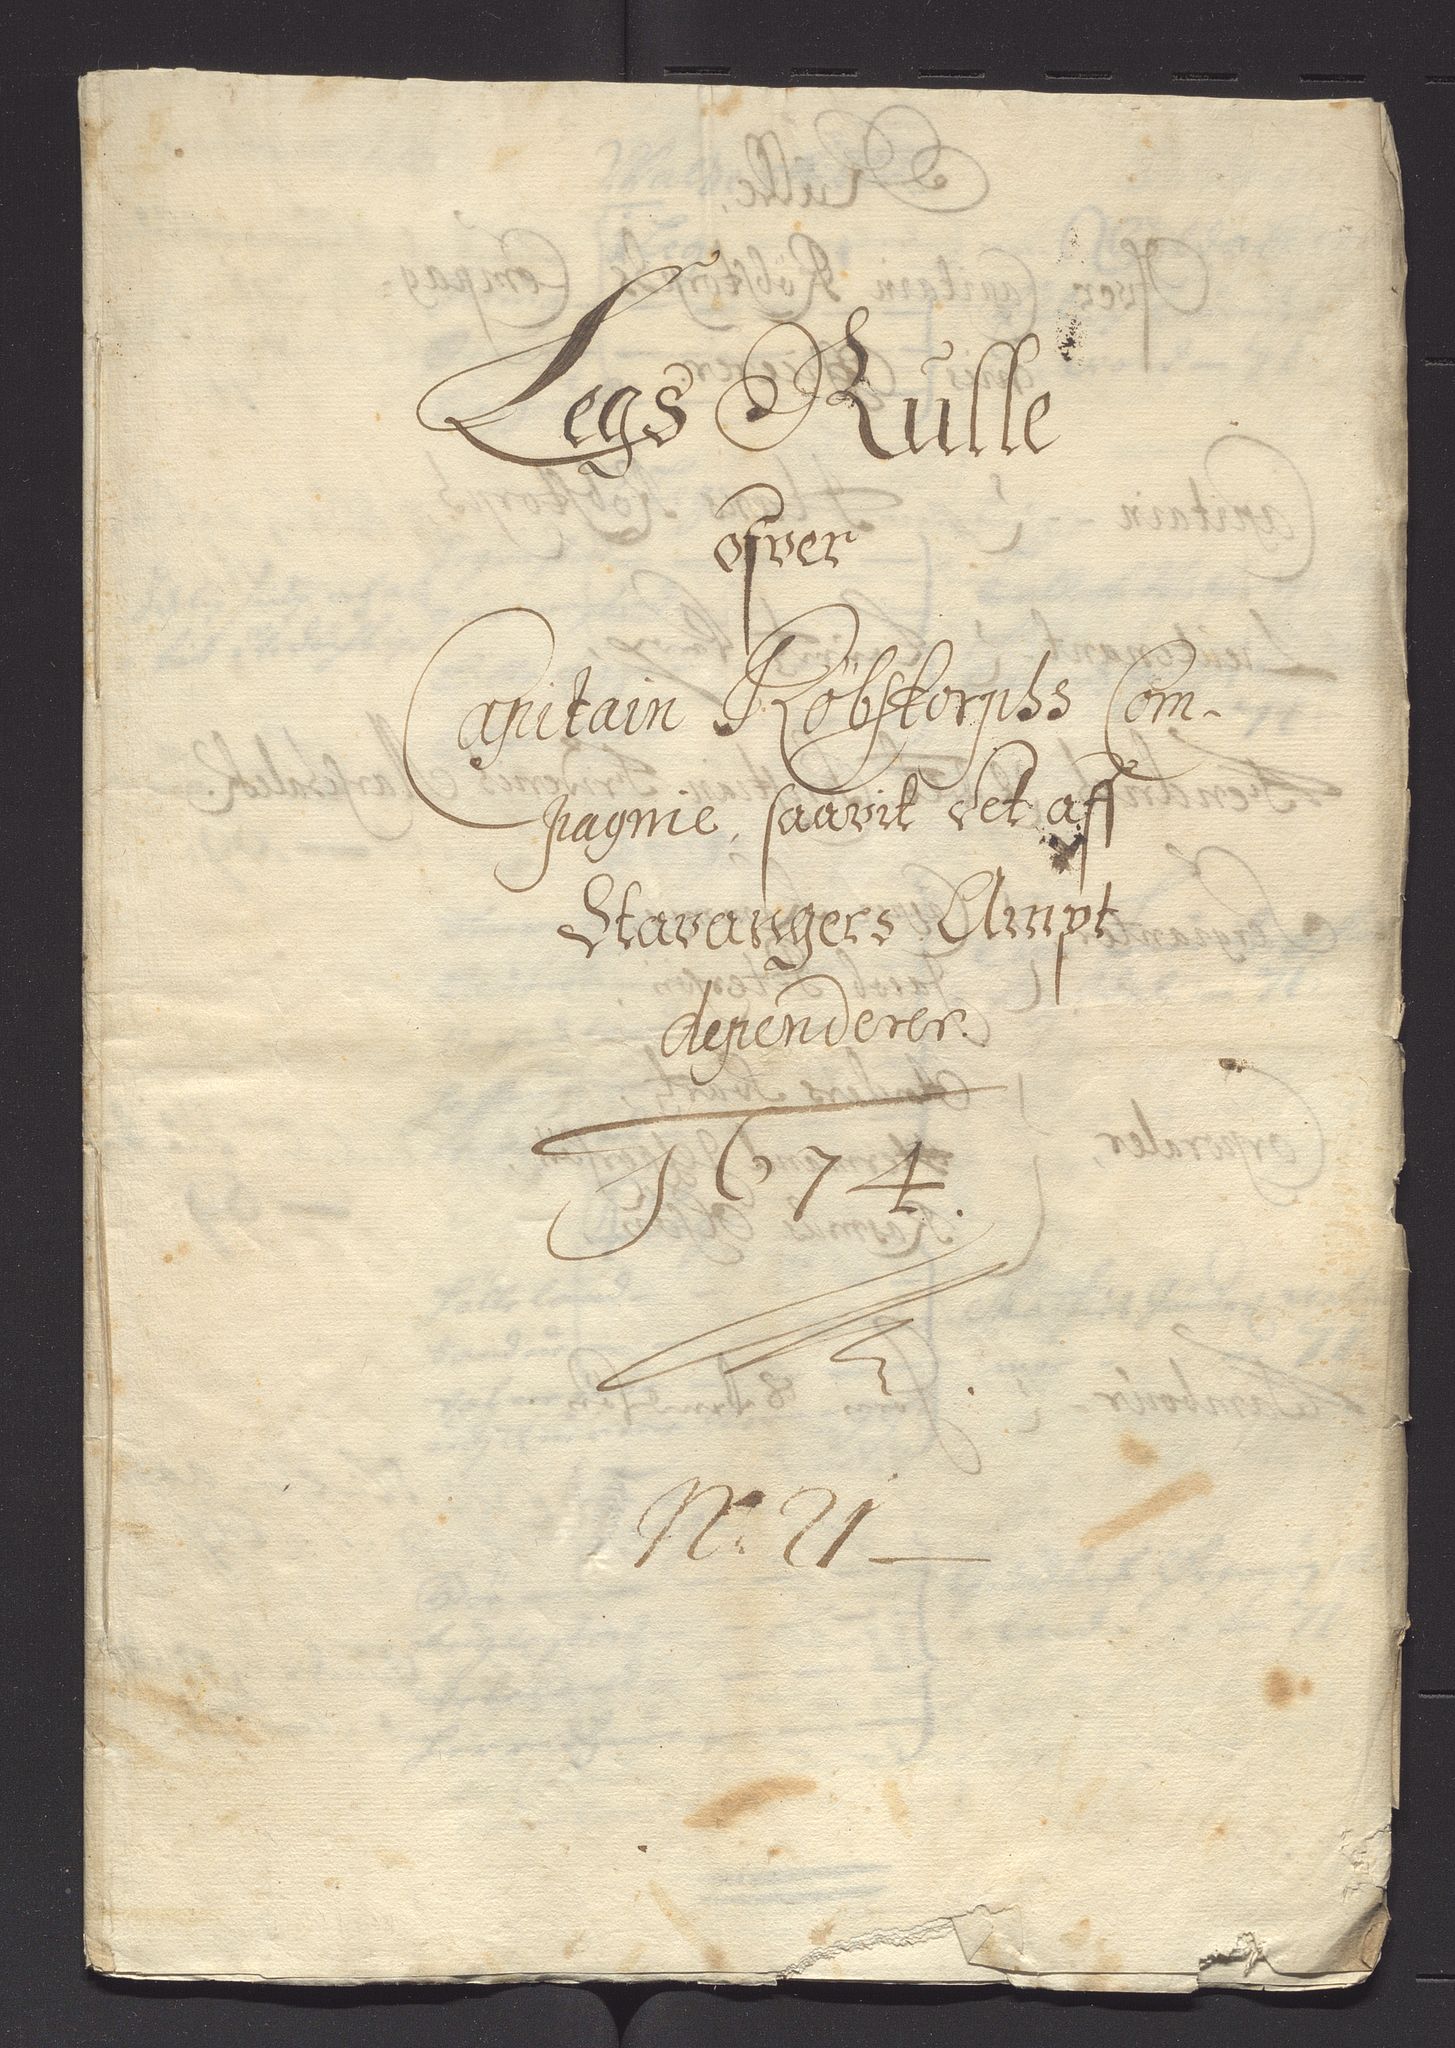 Legs Rulle
ofver
Capitain Röbstorphs Com-
pagnie, saavit det aff
Stavangers Ampt
dependerer.
1674.
No: 21